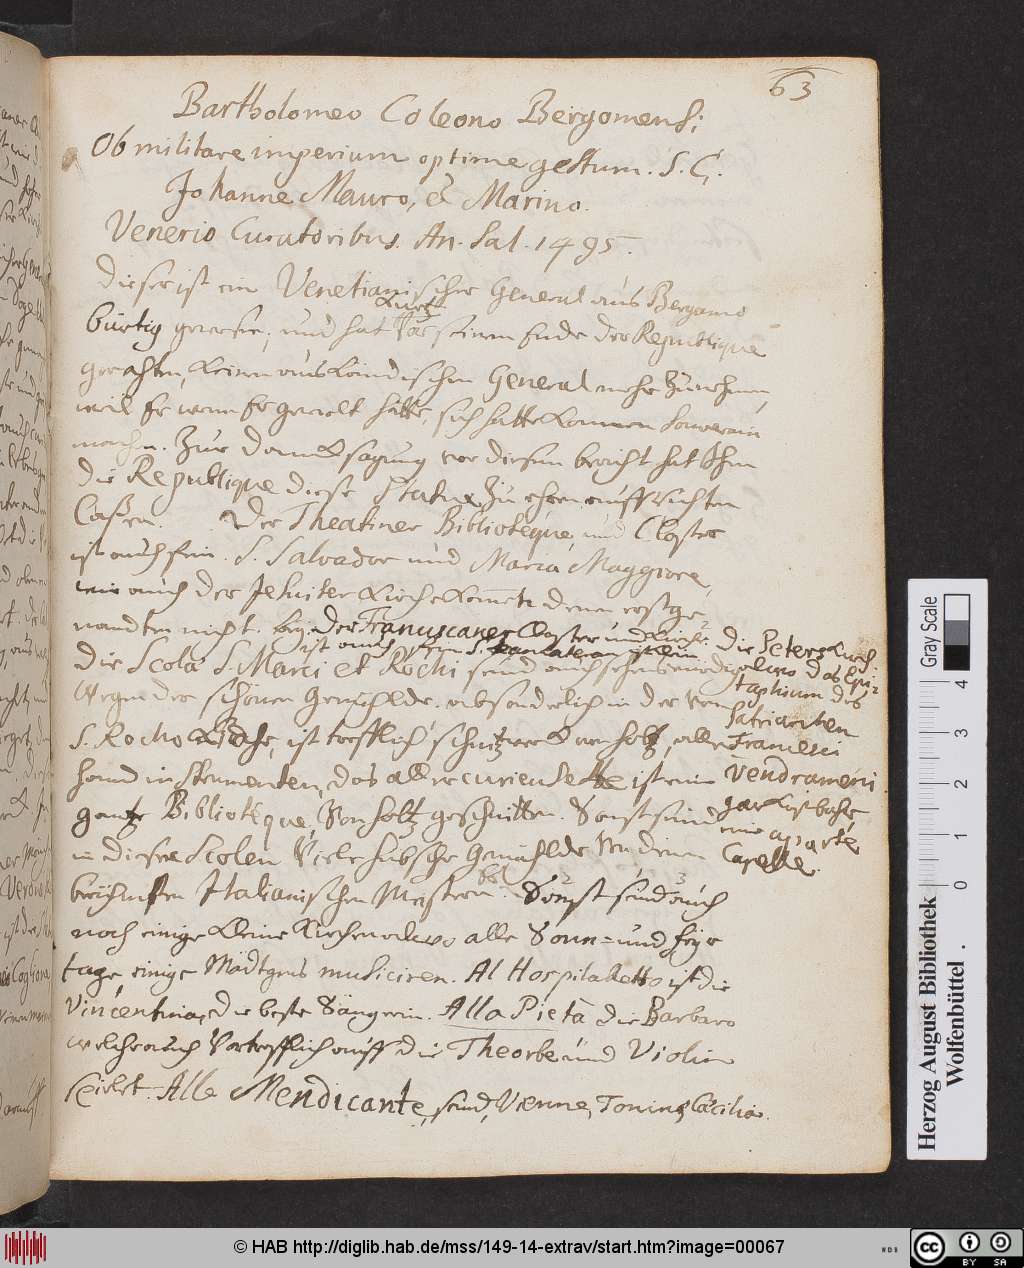 63
Bartholomeo Coleono Bergomensi
Ob militare imperium optime gestum. S. C.
Johanne Mauro, et Marino.
Venerio Curatoribus. An. Sal. 1495.
Dieser ist ein Venetianischer General aus Bergamo
kurtz
bürtig gewesen, und hat vor seinem Ende der Republique
gerahten, keinen ausländischen General mehr zu nehmen,
weil Er wenn Er gewolt hätte, sich hatte können souverain
machen. Zur Dancksagung vor diesen bericht hat Ihm
die Republique diese Statue zu ehren auffrichten
laßen. Der Theatiner Biblioteque und Closter
ist auch fein. S. Salvador und Maria Maggiore,
wie auch der Jesuiter Kirche kommt denen erstge-
nandten nicht bey. Der Franciscaner Closter und Kirche
ist auch fein
die Scola S. Marci et Rochi seind auch sehenswürdig
wegen der schönen Gemählde. absonderlich in der von
S. Rocho ist trefflich schnitzwerck von holtz, alle
hand instrumenten, das allercurieuseste ist eine
gantze Biblioteque, von holtz geschnitten. Sonst sind
in diesen Scolen viele hübsche Gemählde von denen
berühmsten Italianischen Meistern. Sonst sind auch
noch einige kleine Kirchen alwo alle Sonn- und feyr
tage einige Mädtgens musiciren. Al Hospitaletto ist die
Vincentina, die beste Sängerin. Alla Pietà die Barbara
welche auch vortrefflich auff die Theorbe und Violin
spielet. Alle Mendicante, seind, Vienne, Tonina Cæcilia.
die Peters Kirch
alwo das Epi-
taphium des
Patriarchen
Francisci
Vendrameni
gar kostbahr
eine aparte
Capelle.
Gray Scale
0 1 2 3 4
Herzog August Bibliothek
Wolfenbüttel
© HAB http://diglib.hab.de/mss/149-14-extrav/start.htm?image=00067
WDB
cc BY SA